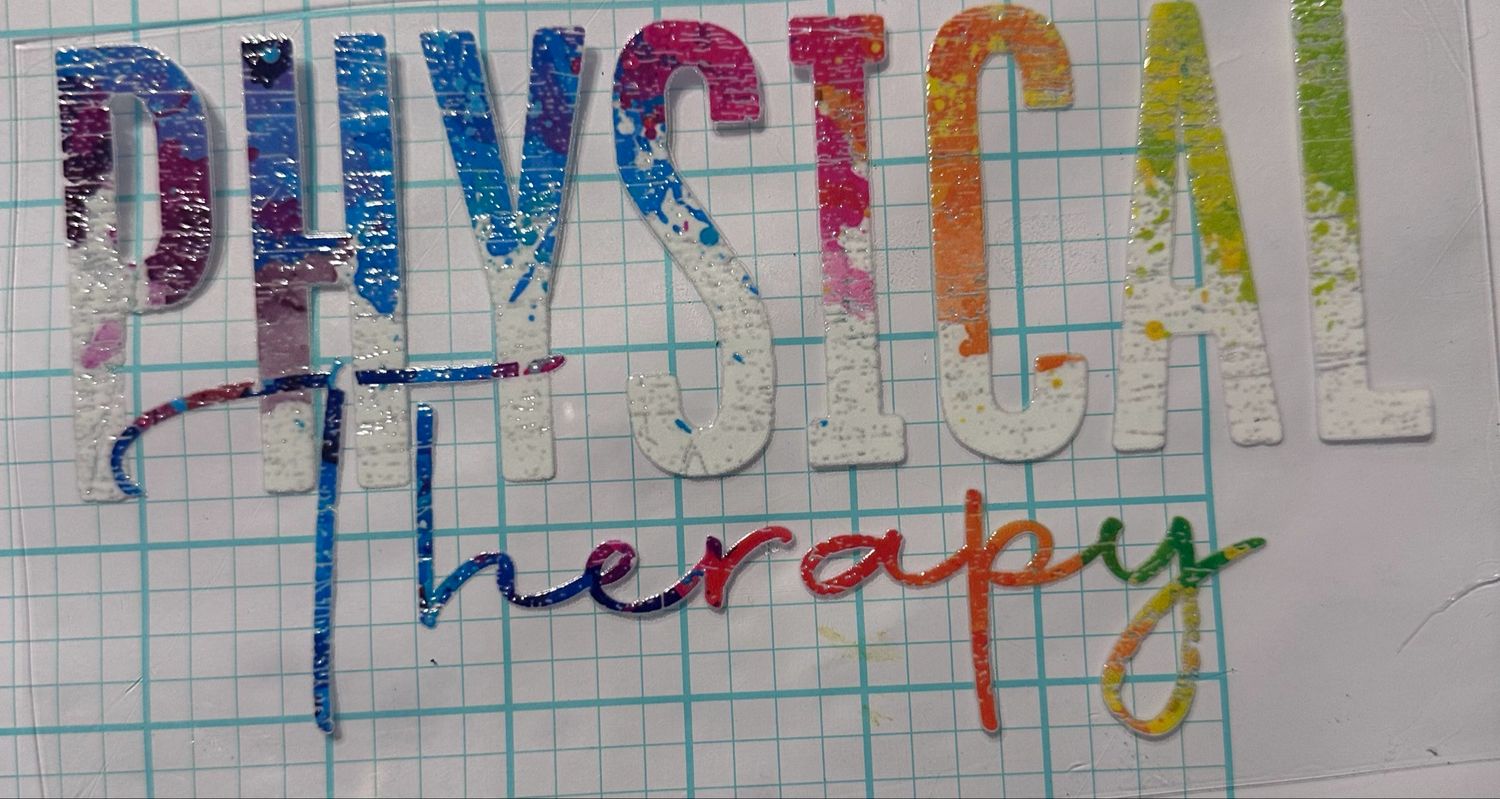 PHYSICAL
Therapy